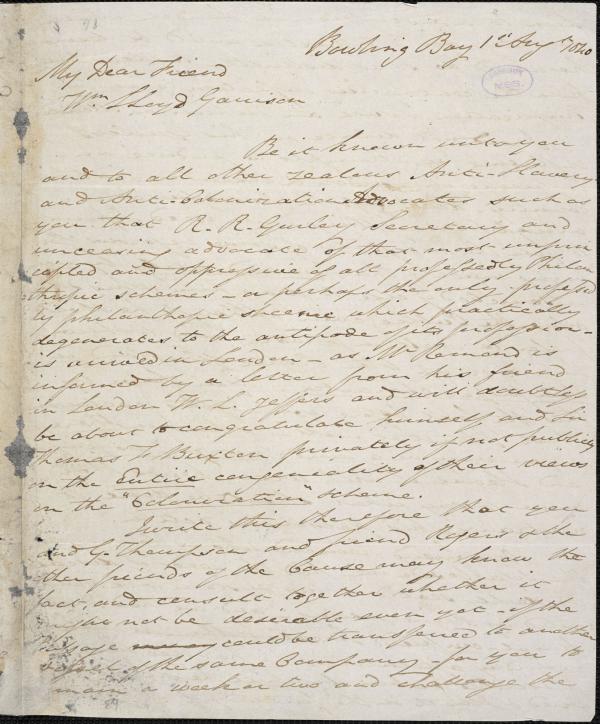 Bowling Bay 1st Augt 1840
My Dear Friend
Wm Lloyd Garrison
Be it known unto you
and to all other zealous Anti-Slavery
and Anti-Colonization Advocates such as
you that R. R. Gurley Secretary and
unceasing advocate of that most unprin
cipled and oppressive of all professedly Philan
thropic schemes – or perhaps the only professed
ly philanthropic scheme which practically
degenerates to the antipode of its profession –
is arrived in London – as Mr Remond is
informed by a letter from his friend
in London W. L. Jeffers and will doubtless
be about to congratulate himself and Sir
Thomas F. Buxton privately if not publicly
on the Entire congeniality of their views
on the "Colonization" scheme.
I write this therefore that you
and G. Thompson and friend Rogers & the
other friends of the Cause may know the
fact, and consult together whether it
might not be desirable even yet – if the
passage could be transferred to another
of the same Company for you to
remain a week or two and challenge the